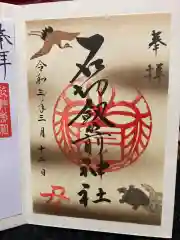 奉拝
石切劔箭神社
令和三年三月十二日
丑
奉拝